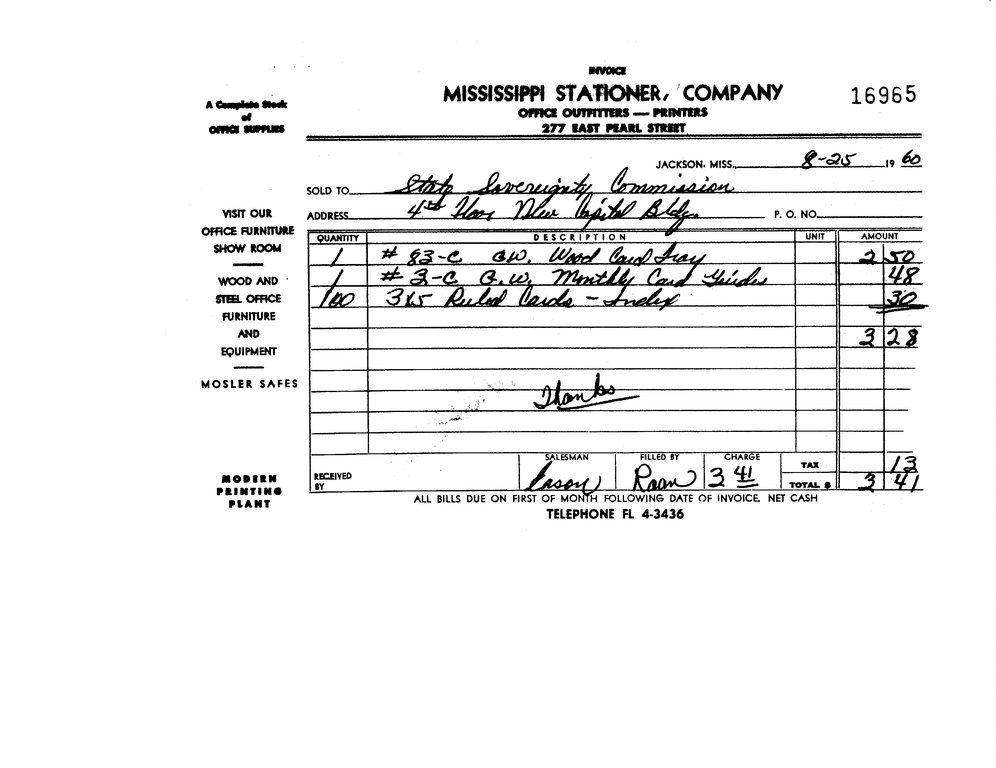 INVOICE
MISSISSIPPI STATIONER, COMPANY
16965
OFFICE OUTFITTERS — PRINTERS
277 EAST PEARL STREET
A Complete Stock
of
OFFICE SUPPLIES
JACKSON, MISS. 8-25 19 60
SOLD TO State Sovereignty Commission
ADDRESS 4th Floor New Capitol Bldg. P. O. NO.
VISIT OUR
OFFICE FURNITURE
SHOW ROOM
WOOD AND
STEEL OFFICE
FURNITURE
AND
EQUIPMENT
MOSLER SAFES
MODERN
PRINTING
PLANT
QUANTITY DESCRIPTION UNIT AMOUNT
1 # 83-C G.W. Wood Card Tray 2 50
1 # 3-C G.W. Monthly Card Guides 48
100 3x5 Ruled Cards - Index 30
3 28
Thanks
SALESMAN FILLED BY CHARGE TAX 13
RECEIVED BY Cason 3 41 TOTAL $ 3 41
ALL BILLS DUE ON FIRST OF MONTH FOLLOWING DATE OF INVOICE. NET CASH
TELEPHONE FL 4-3436